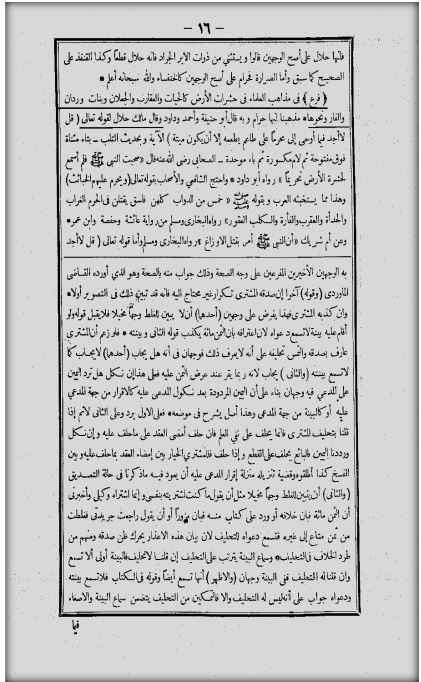 — ١٦ —
فانها حلال على أصح الوجهين قالوا ويستثني من ذوات الابر الجراد فانه حلال قطعا وكذا القنفذ على
الصحيح كما سبق وأما الصرارة فحرام على أصح الوجهين كالخنفساء والله سبحانه أعلم *
﴿ فرع ﴾ فى مذاهب العلماء فى حشرات الأرض كالحيات والعقارب والجعلان وبنات وردان
والفار ونحوها * مذهبنا انها حرام وبه قال أبو حنيفة وأحمد وداود وقال مالك حلال لقوله تعالى ( قل
لا أجد فيما أوحى إلى محرما على طاعم يطعمه إلا أن يكون ميتة ) الآية وبحديث التلب - بتاء مثناة
فوق مفتوحة ثم لام مكسورة ثم باء موحدة - الصحابى رضى الله عنه قال « صحبت النبى ﷺ فلم أسمع
لحشرة الأرض تحريما » رواه أبو داود * واحتج الشافعى والأصحاب بقوله تعالى ( ويحرم عليهم الخبائث )
وهذا مما يستخبثه العرب وبقوله ﷺ « خمس من الدواب كلهن فاسق يقتلن فى الحرم الغراب
والحدأة والعقرب والفأرة والكلب العقور » رواه البخارى ومسلم من رواية عائشة وحفصة وابن عمر *
وعن أم شريك « أن النبى ﷺ أمر بقتل الاوزاغ » رواه البخارى ومسلم وأما قوله تعالى ( قل لا أجد
به الوجهين الأخيرين المفرعين على وجه الصحة وذلك جواب منه بالصحة وهو الذي أورده القاضى
الماوردى ( وقوله ) آخرا إن صدقه المشترى تكرار غير محتاج اليه فانه قد تبين ذلك فى التصوير أولا *
وان كذبه المشترى فهذا يفرض على وجهين ( أحدهما ) أن لا يبين للغلط وجها مخيلا فلا يقبل قوله ولو
أقام عليه بينة لا تسمع دعواه لان اعترافه بان الثمن مائة يكذب قوله الثانى وبينته * فلو زعم أن المشترى
عارف بصدقه والتمس تحليفه على أنه لا يعرف ذلك فوجهان فى أنه هل يجاب ( أحدهما ) لا يجاب كما
لا تسمع بينته ( والثانى ) يجاب لانه ربما يقر عند عرض اليمين عليه فعلى هذا إن نكل هل ترد اليمين
على المدعي فيه وجهان بناء على أن اليمين المردودة بعد نكول المدعى عليه كالاقرار من جهة المدعي
عليه أو كالبينة من جهة المدعى وهذا أصل يشرح فى موضعه * فعلى الاول ترد وعلى الثانى لا ثم إذا
قلنا بتحليف المشترى فانما يحلف على نفي العلم فان حلف أمضى العقد على ما حلف عليه وإن نكل
ورددنا اليمين فالبائع يحلف على القطع وإذا حلف فللمشترى الخيار بين إمضاء العقد بما حلف عليه وبين
الفسخ كذا أطلقوه وقضية تنزيله منزلة إقرار المدعى عليه أن يعود فيه ما ذكرنا فى حالة التصديق
( والثانى ) أن يبين للغلط وجها مخيلا مثل أن يقول ما كنت اشتريته بنفسى وإنما اشتراه وكيلى وأخبرنى
أن الثمن مائة فبان خلافه أو ورد على كتاب منه فبان مزورا أو أن يقول راجعت جريدتى فغلطت
من ثمن متاع إلى غيره فتسمع دعواه للتحليف لان بيان هذه الاعذار يحرك ظن صدقه ومنهم من
طرد الخلاف فى التحليف * وسماع البينة يترتب على التحليف إن قلنا لا تحليف فالبينة أولى ألا تسمع
وإن قلنا له التحليف ففى البينة وجهان ( والأظهر ) أنها تسمع أيضا وقوله فى الكتاب فلا تسمع بينته
ودعواه جواب على أنه ليس له التحليف والا فالتمكين من التحليف يتضمن سماع البينة والاصغاء
فيما